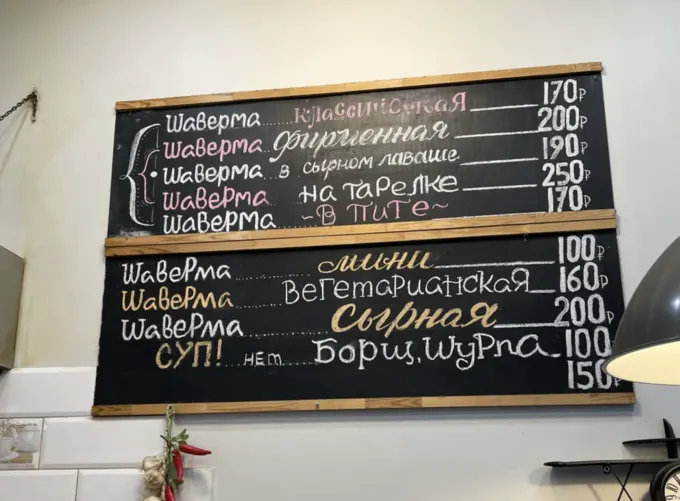 Шаверма классическая 170₽
Шаверма фирменная 200₽
Шаверма в сырном лаваше 190₽
Шаверма на тарелке 250₽
Шаверма ~в пите~ 170₽
Шаверма мини 100₽
Шаверма вегетарианская 160₽
Шаверма сырная 200₽
СУП! нет Борщ, шурпа 100₽
150₽